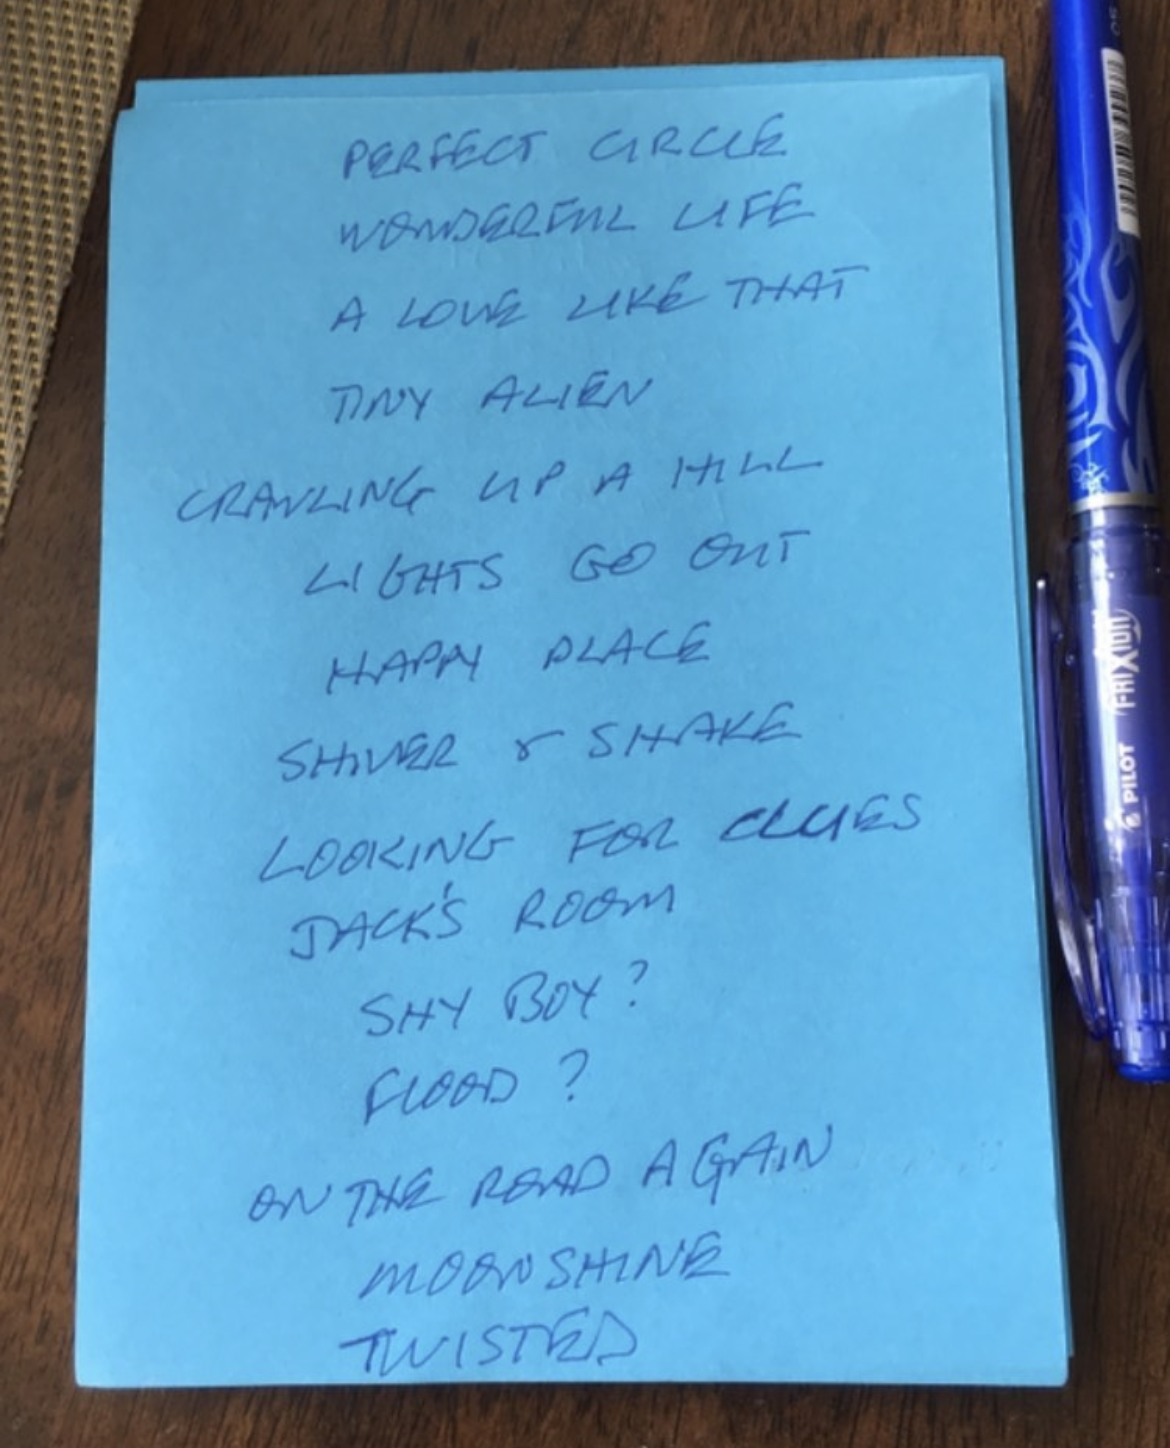 PERFECT CIRCLE
WONDERFUL LIFE
A LOVE LIKE THAT
TINY ALIEN
CRAWLING UP A HILL
LIGHTS GO OUT
HAPPY PLACE
SHIVER & SHAKE
LOOKING FOR CLUES
JACK'S ROOM
SHY BOY?
FLOOD?
ON THE ROAD AGAIN
MOONSHINE
TWISTED
PILOT FRIXION
05